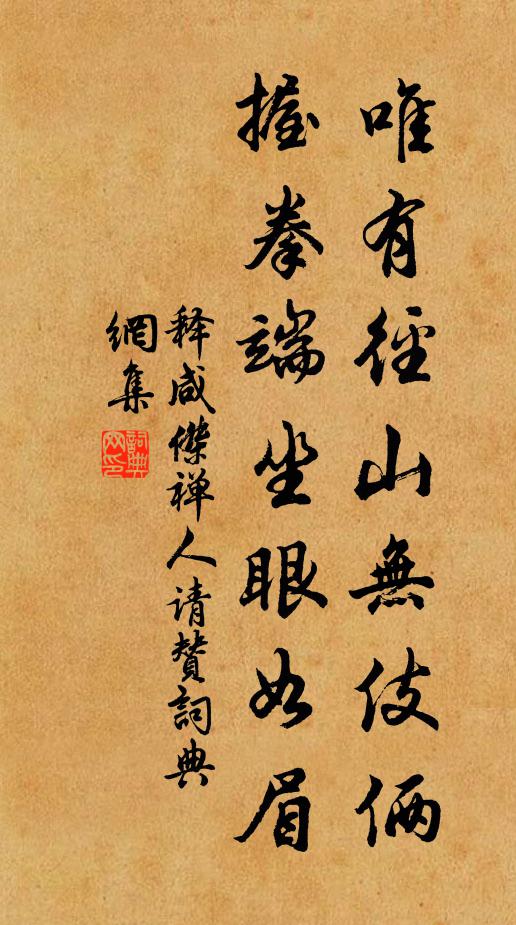 唯有徑山無伎倆
握拳端坐眼如眉
释咸傑禅人请赞詞典
網集
詞典
网印